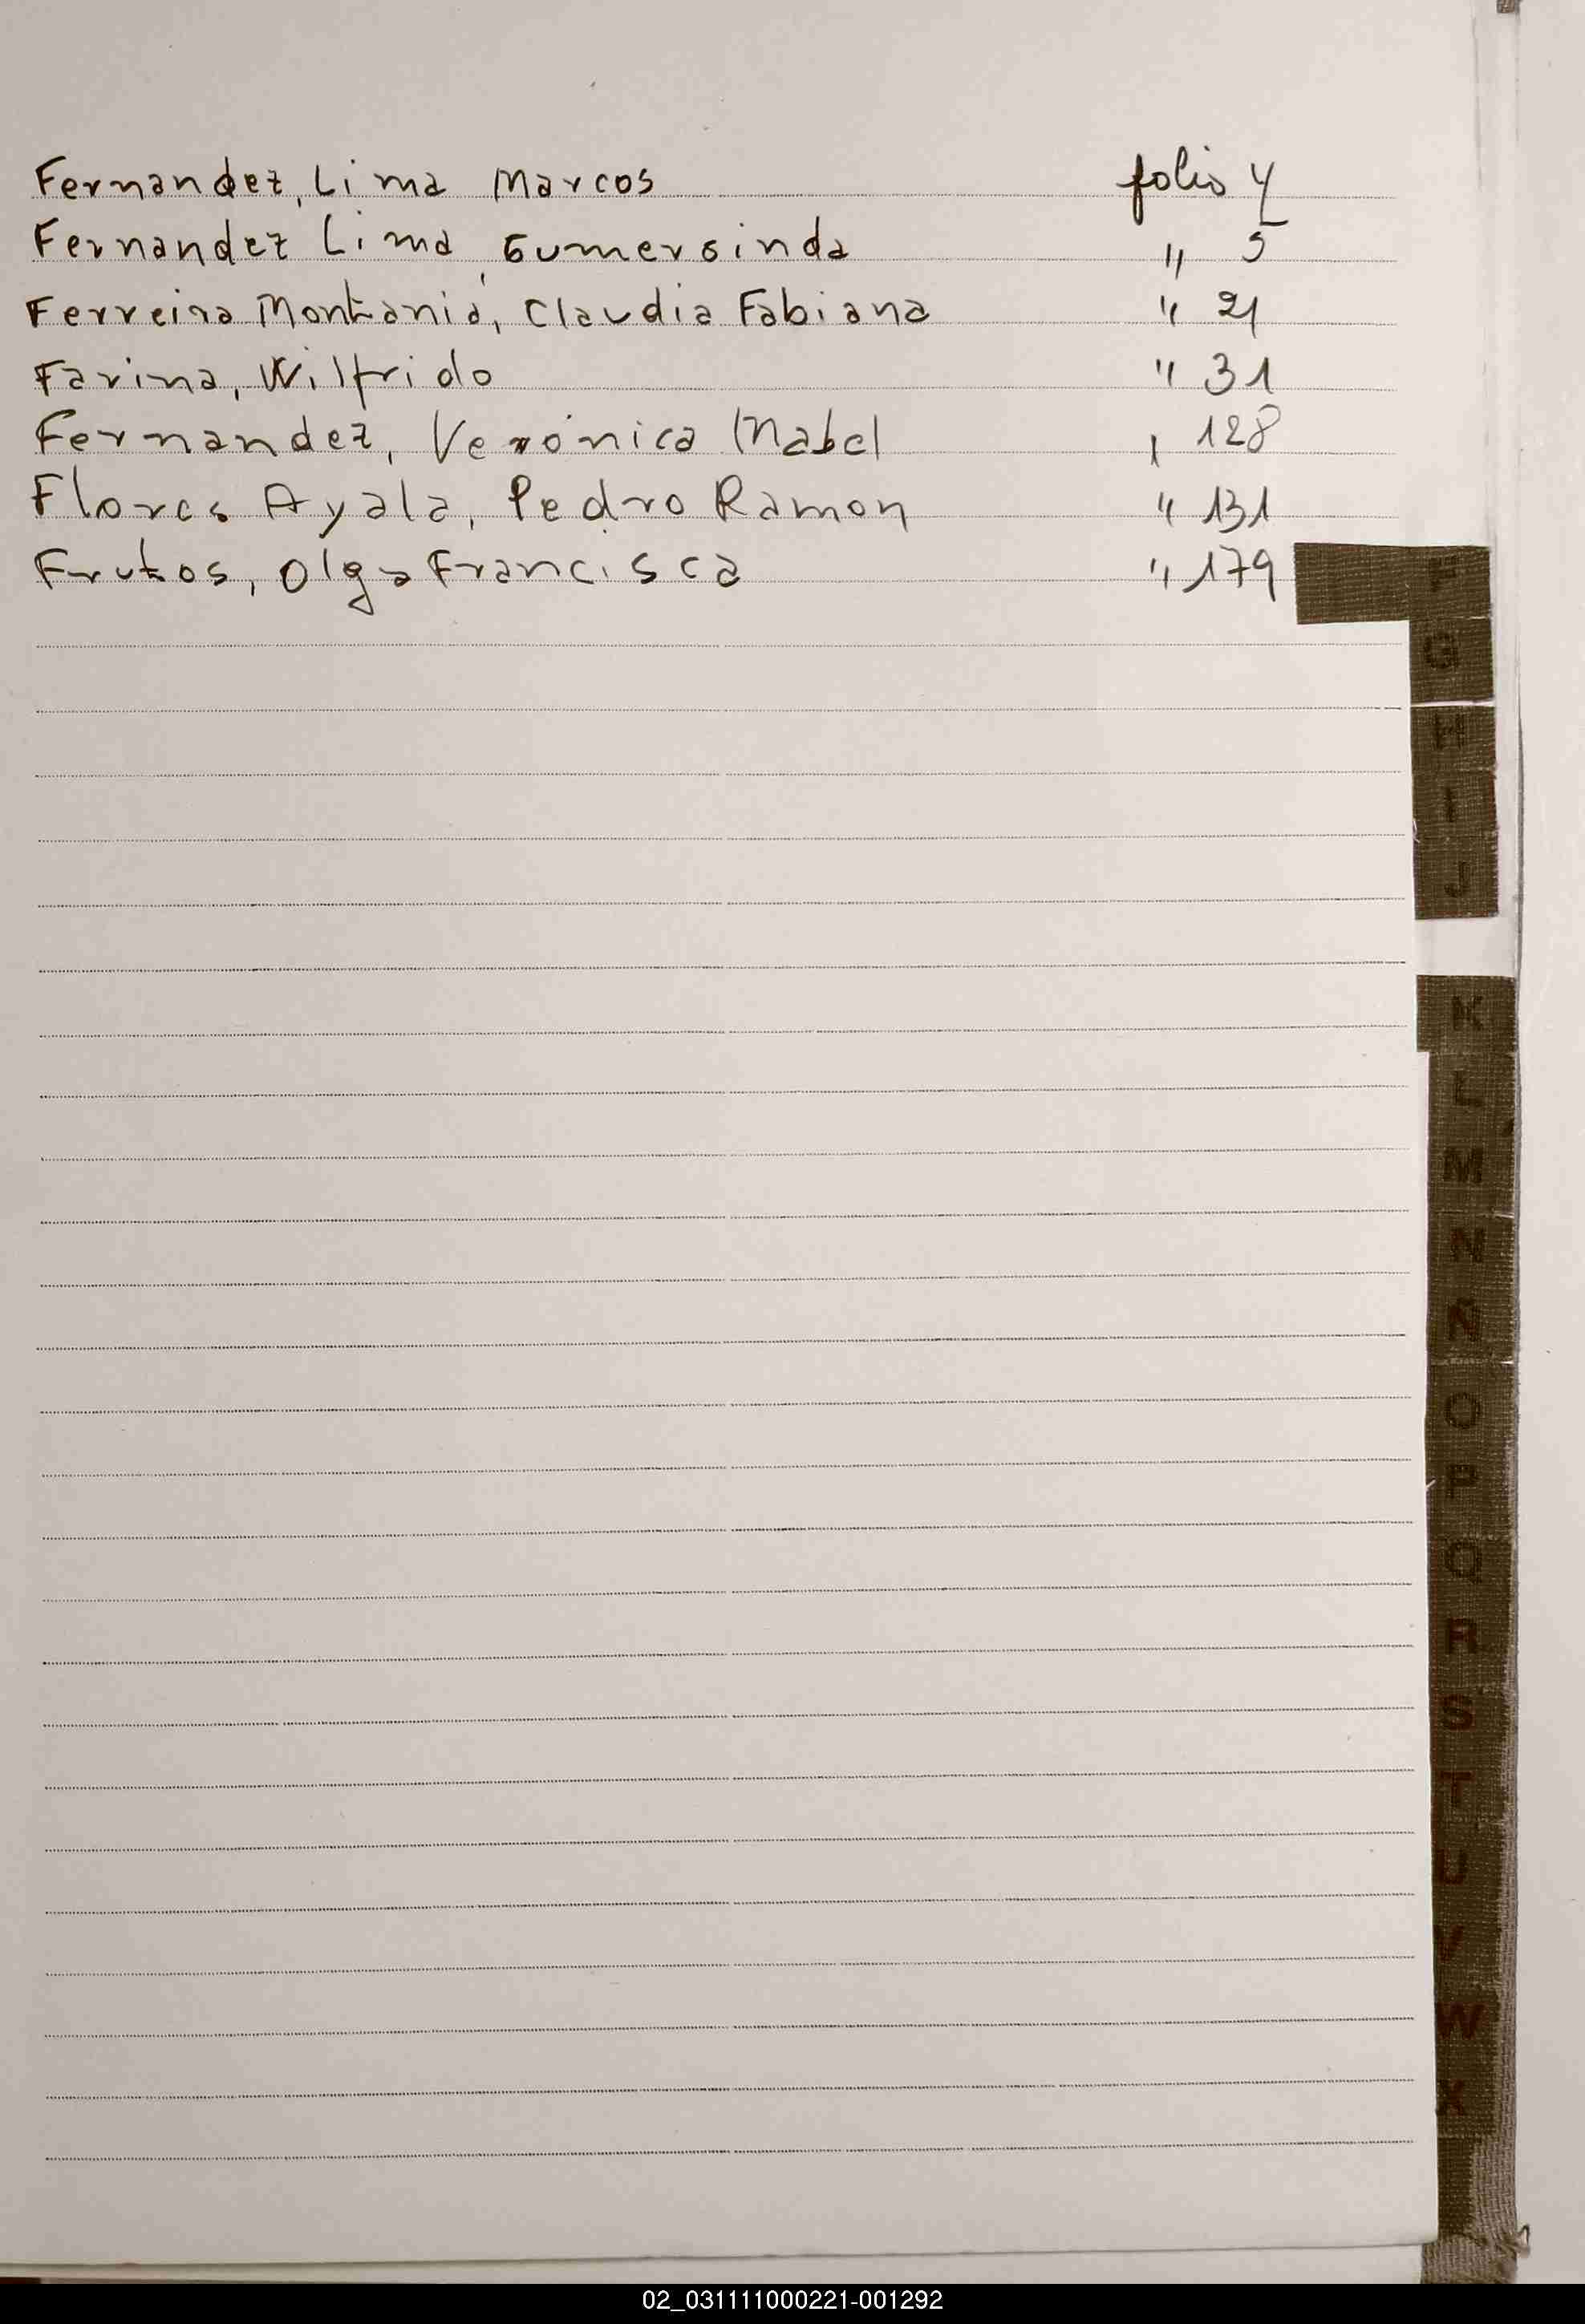 Fernandez, Lima Marcos folio 4
Fernandez Lima, Gumersinda " 5
Ferreira Montania, Claudia Fabiana " 21
Farina, Wilfrido " 31
Fernandez, Verónica Mabel , 128
Flores Ayala, Pedro Ramon " 131
Frutos, Olga Francisca " 179
F
G
H
I
J
K
L
M
N
Ñ
O
P
Q
R
S
T
U
V
W
X
02_031111000221-001292